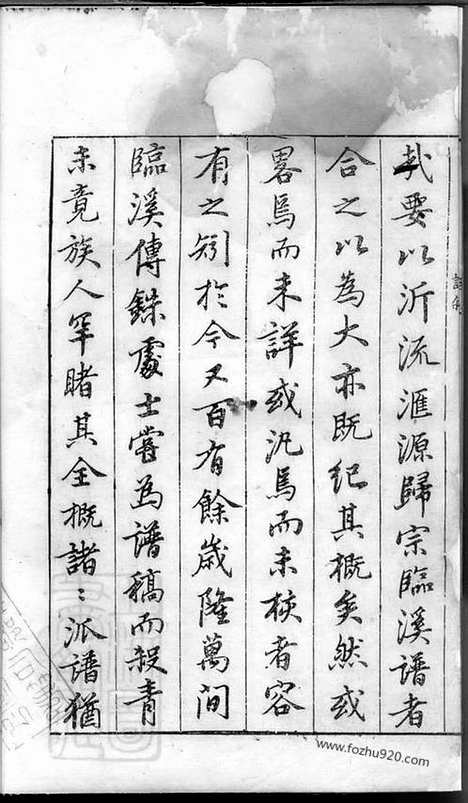 哉要以沂流滙源歸宗臨溪譜者
合之以為大亦既紀其概矣然或
畧焉而未詳或汎焉而未核者容
有之矧於今又百有餘歲隆萬间
臨溪傳銖處士嘗為譜稿而殺青
未竟族人罕睹其全概諸〻派譜猶
www.fozhu920.com